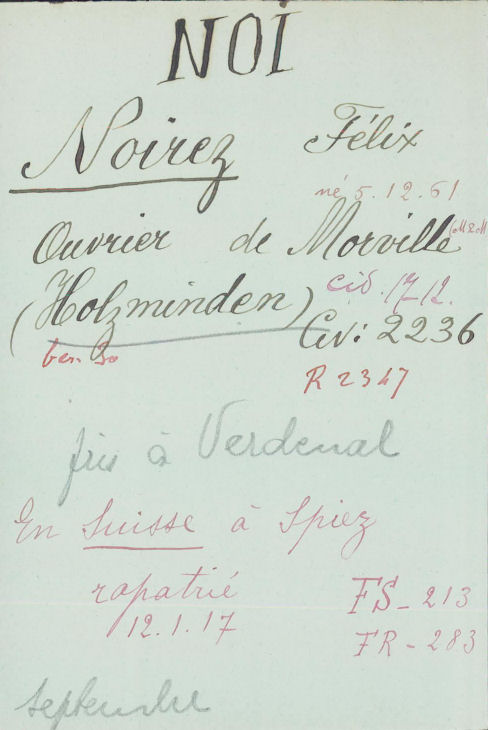 NOI
Noirez Félix
né 5.12.61
Ouvrier de Morville (M&M)
(Holzminden) cid. 17-12.
Civ: 2236
bar. 30
R 2347
pris à Verdenal
En Suisse à Spiez
rapatrié FS-213
12.1.17 FR-283
septembre